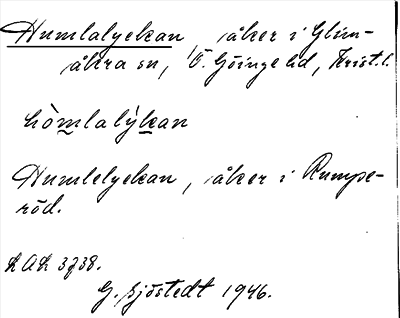 Humlalyckan, åker i Glim-
åkra sn, Ö. Göinge hd, Krist. l.
hòmlalýkan
Humlelyckan, åker i Rumpe-
röd.
LAL 3738.
G. Sjöstedt 1946.